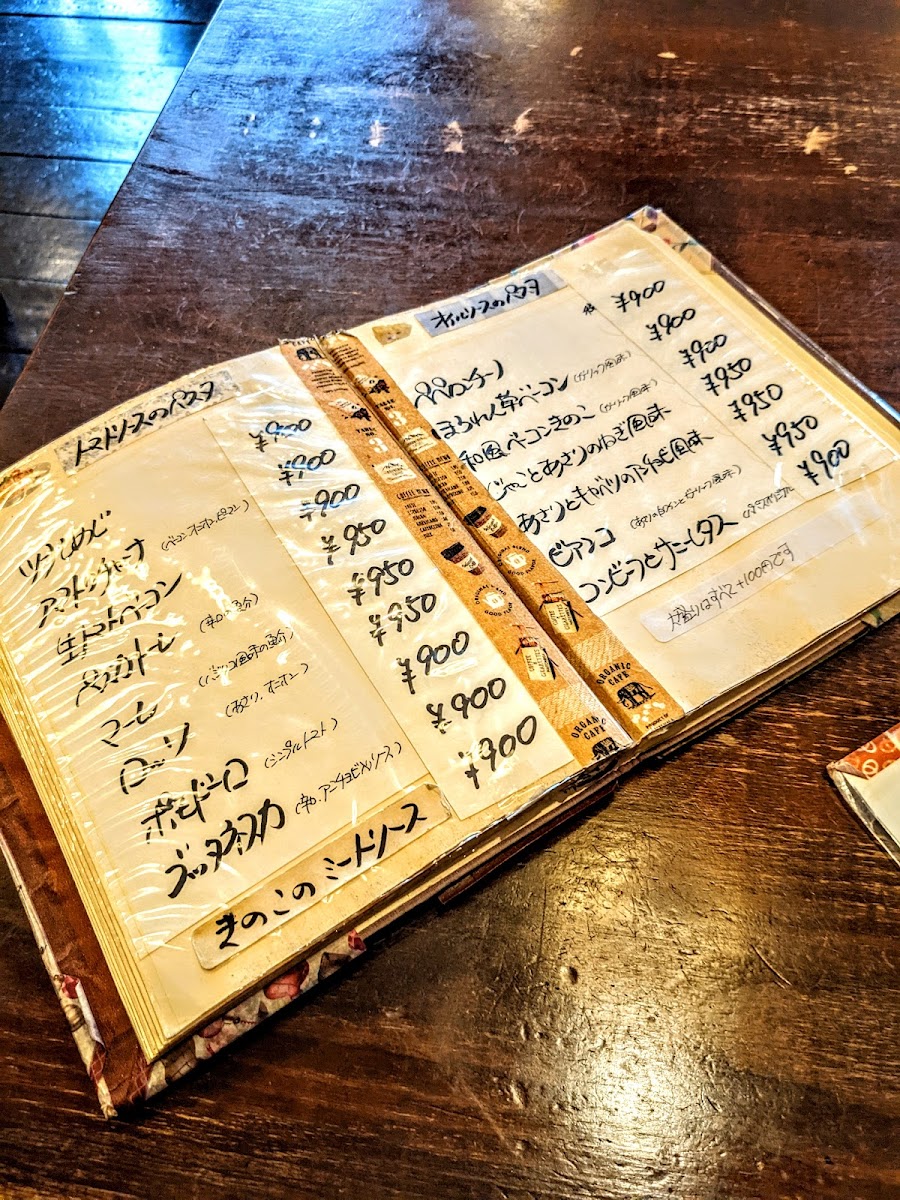 トマトソースのパスタ
ツナしめじ ¥900
アマトリチャーナ ¥900
生トマトベーコン ¥900
ペスカトーレ ¥950
マーレ ¥950
ロッソ (あさり、オニオン) ¥950
ポモドーロ (シンプルトマト) ¥900
プッタネスカ (辛口、アンチョビ入りソース) ¥900
きのこのミートソース ¥900
オイルソースのパスタ
ペペロンチーノ ¥900
ほうれん草ベーコン (ガーリック風味) ¥900
和風ベーコンきのこ (ガーリック風味) ¥900
じゃことあさりのねぎ風味 ¥950
あさりとキャベツのアンチョビ風味 ¥950
ビアンコ (あさりの白ワインとガーリック風味) ¥950
コンビーフとサニーレタス ¥900
大盛りはすべて+100円です
ORGANIC CAFE
ORGANIC CAFE